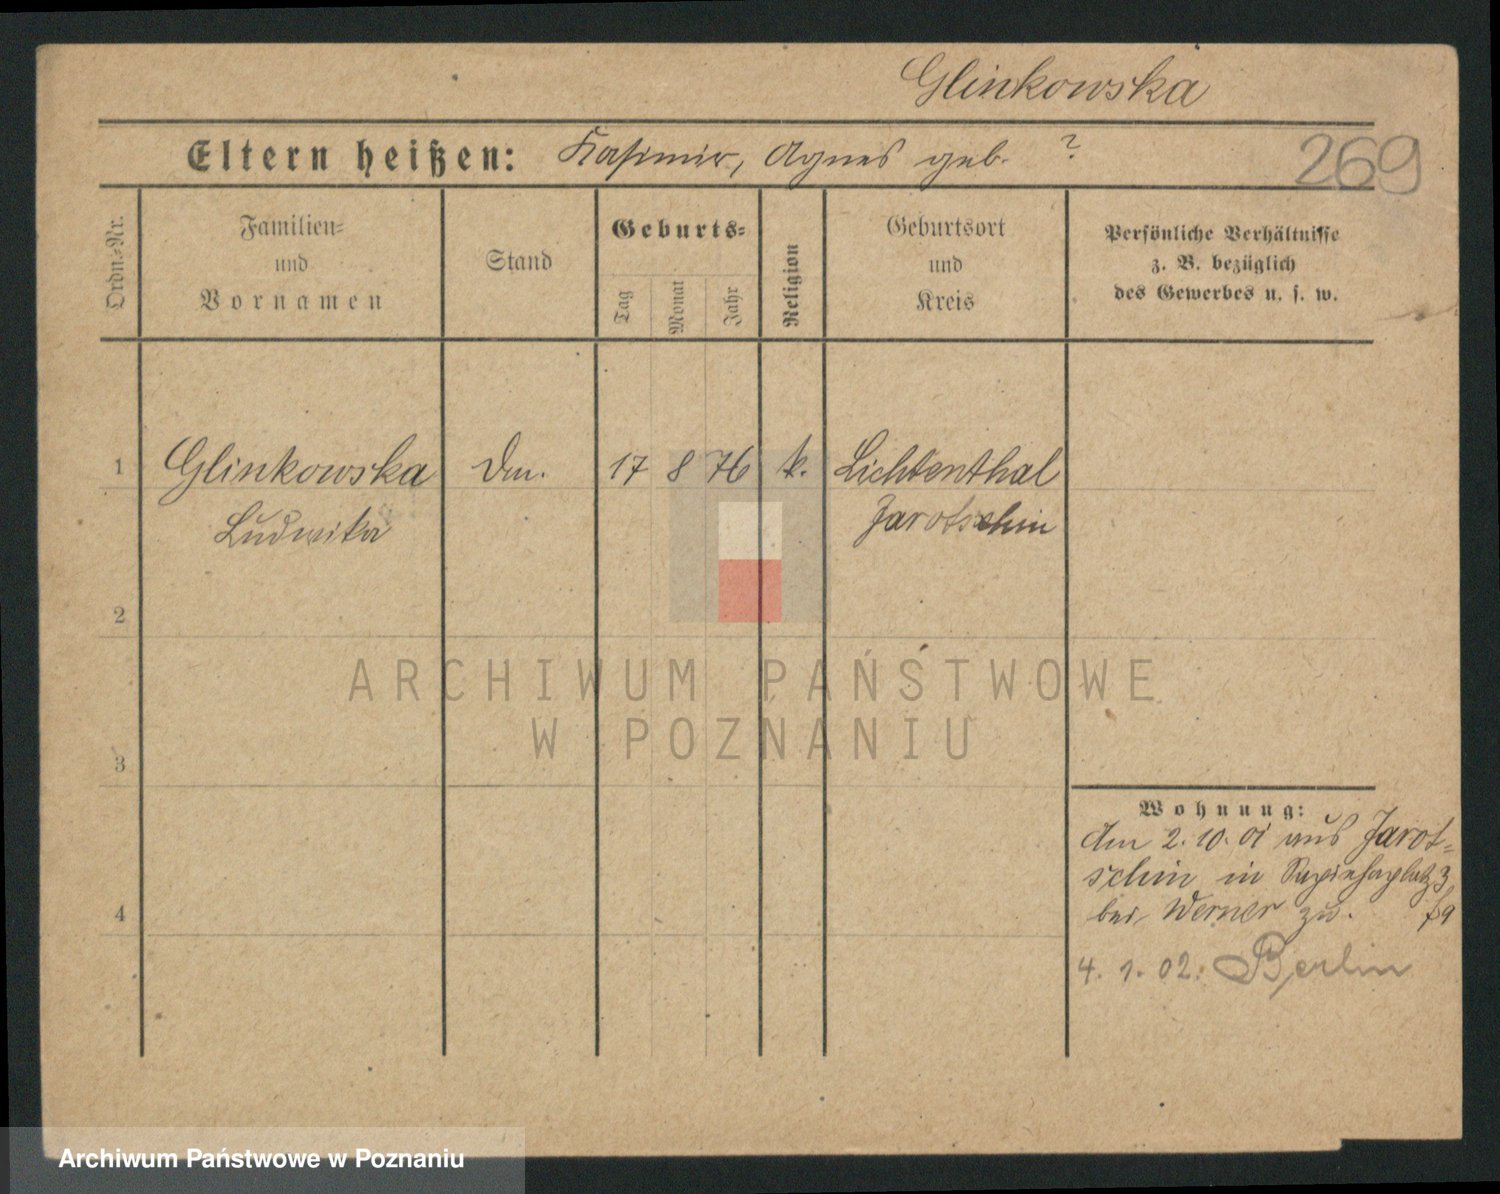 Glinkowska
Eltern heißen: Kasimir, Agnes geb. ?
269
Ordn.=Nr.
Familien=
und
Vornamen
Stand
Geburts=
Tag
Monat
Jahr
Religion
Geburtsort
und
Kreis
Persönliche Verhältnisse
z. B. bezüglich
des Gewerbes u. s. w.
1 Glinkowska 17 8 76 k. Lichtenthal
Ludwika Jarotschin
2
3
4
ARCHIWUM PAŃSTWOWE
W POZNANIU
Wohnung:
Am 2. 10. 01 aus Jarot=
schin in Sapiehaplatz 3
bei Werner zu.
4. 1. 02. Berlin
Archiwum Państwowe w Poznaniu